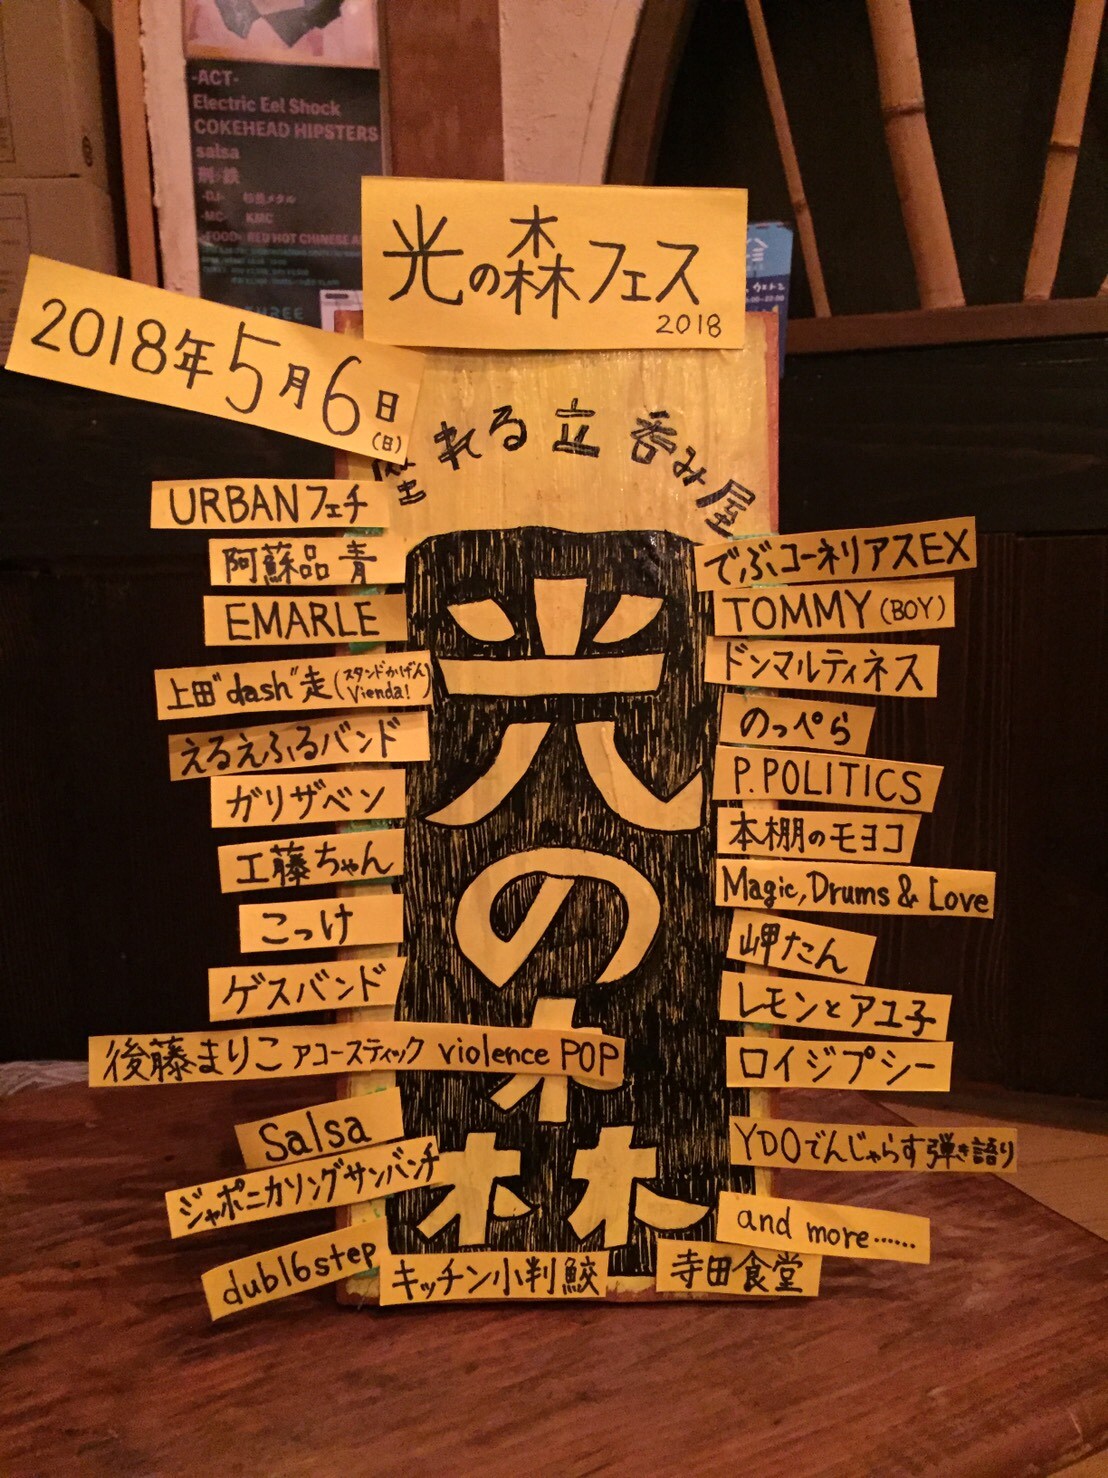 -ACT-
Electric Eel Shock
COKEHEAD HIPSTERS
salsa
刑鉄
-DJ- 杉並メタル
-MC- KMC
-FOOD- RED HOT CHINESE
光の森フェス
2018
2018年5月6日
(日)
座れる立呑み屋
光の森
URBANフェチ
阿蘇品青
EMARLE
上田"dash"走(スタンドかげん Vienda!)
えるえふるバンド
ガリザベン
工藤ちゃん
こっけ
ゲスバンド
後藤まりこアコースティック violence POP
Salsa
ジャポニカソングサンバンチ
dub16step
キッチン小判鮫
寺田食堂
でぶコーネリアスEX
TOMMY(BOY)
ドンマルティネス
のっぺら
P.POLITICS
本棚のモヨコ
Magic,Drums & Love
岬たん
レモンとアユ子
ロイジプシー
YDOでんじゃらす弾き語り
and more......